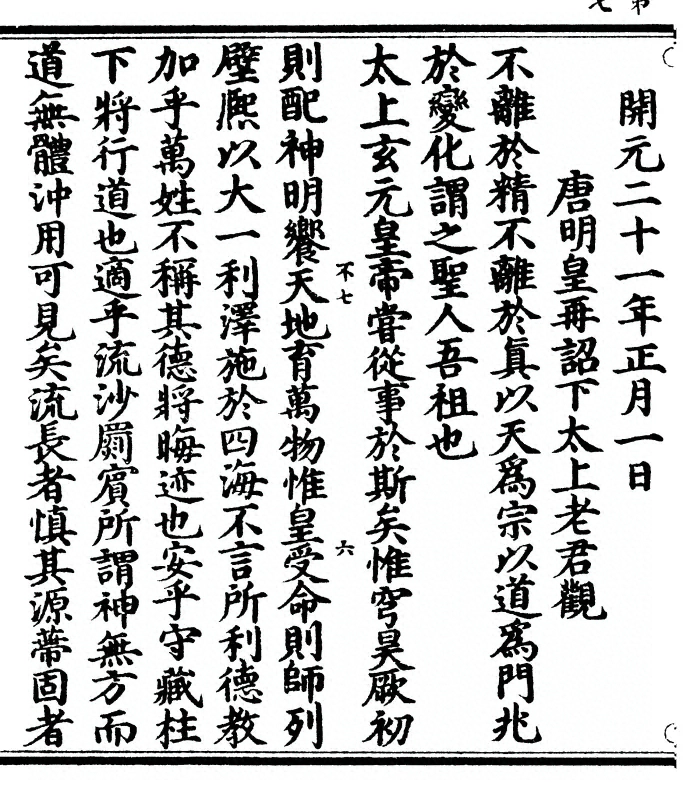 第
七
開元二十一年正月一日
唐明皇再詔下太上老君觀
不離於精不離於眞以天爲宗以道爲門兆
於變化謂之聖人吾祖也
太上玄元皇帝嘗從事於斯矣惟穹昊厥初
不七
六
則配神明饗天地育萬物惟皇受命則師列
壁熈以大一利澤施於四海不言所利德教
加乎萬姓不稱其德將晦迹也安乎守藏柱
下將行道也適乎流沙罽賓所謂神無方而
道無體沖用可見矣流長者愼其源蔕固者